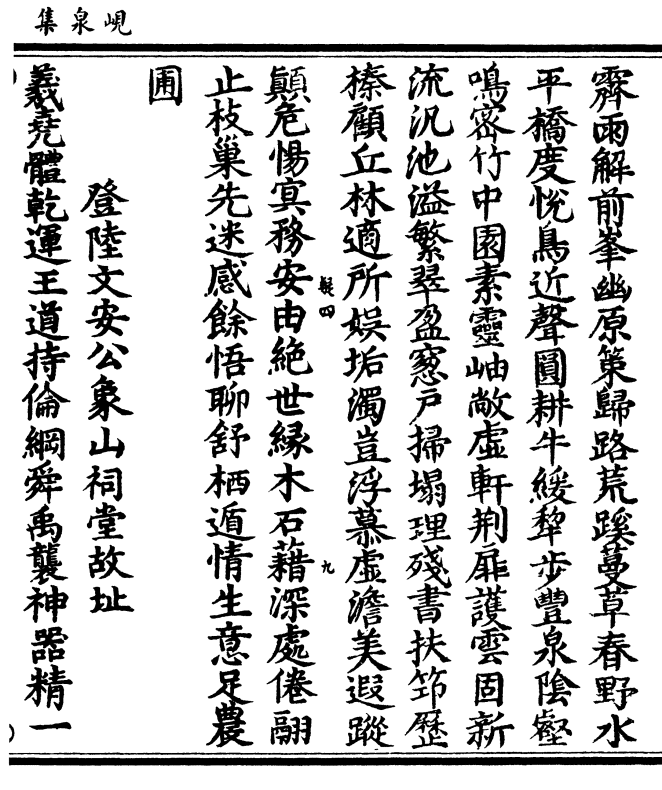 峴泉集
霽雨解前峯幽原策歸路荒蹊蔓草春野水
平橋度悅鳥近聲圓耕牛緩犂步豐泉陰壑
鳴密竹中園素靈岫敞虛軒荆扉護雲固新
流汎池溢繁翠盈窻戸掃塌理殘書扶筇歷
榛顧丘林適所娯垢濁豈浮慕虛澹美遐蹤
顛危惕冥務安由絶世縁木石藉深處倦翮
止枝巢先迷感餘悟聊舒栖遁情生意足農
圃
登陸文安公象山祠堂故址
羲堯體乾運王道持倫綱舜禹襲神器精一
疑四
九